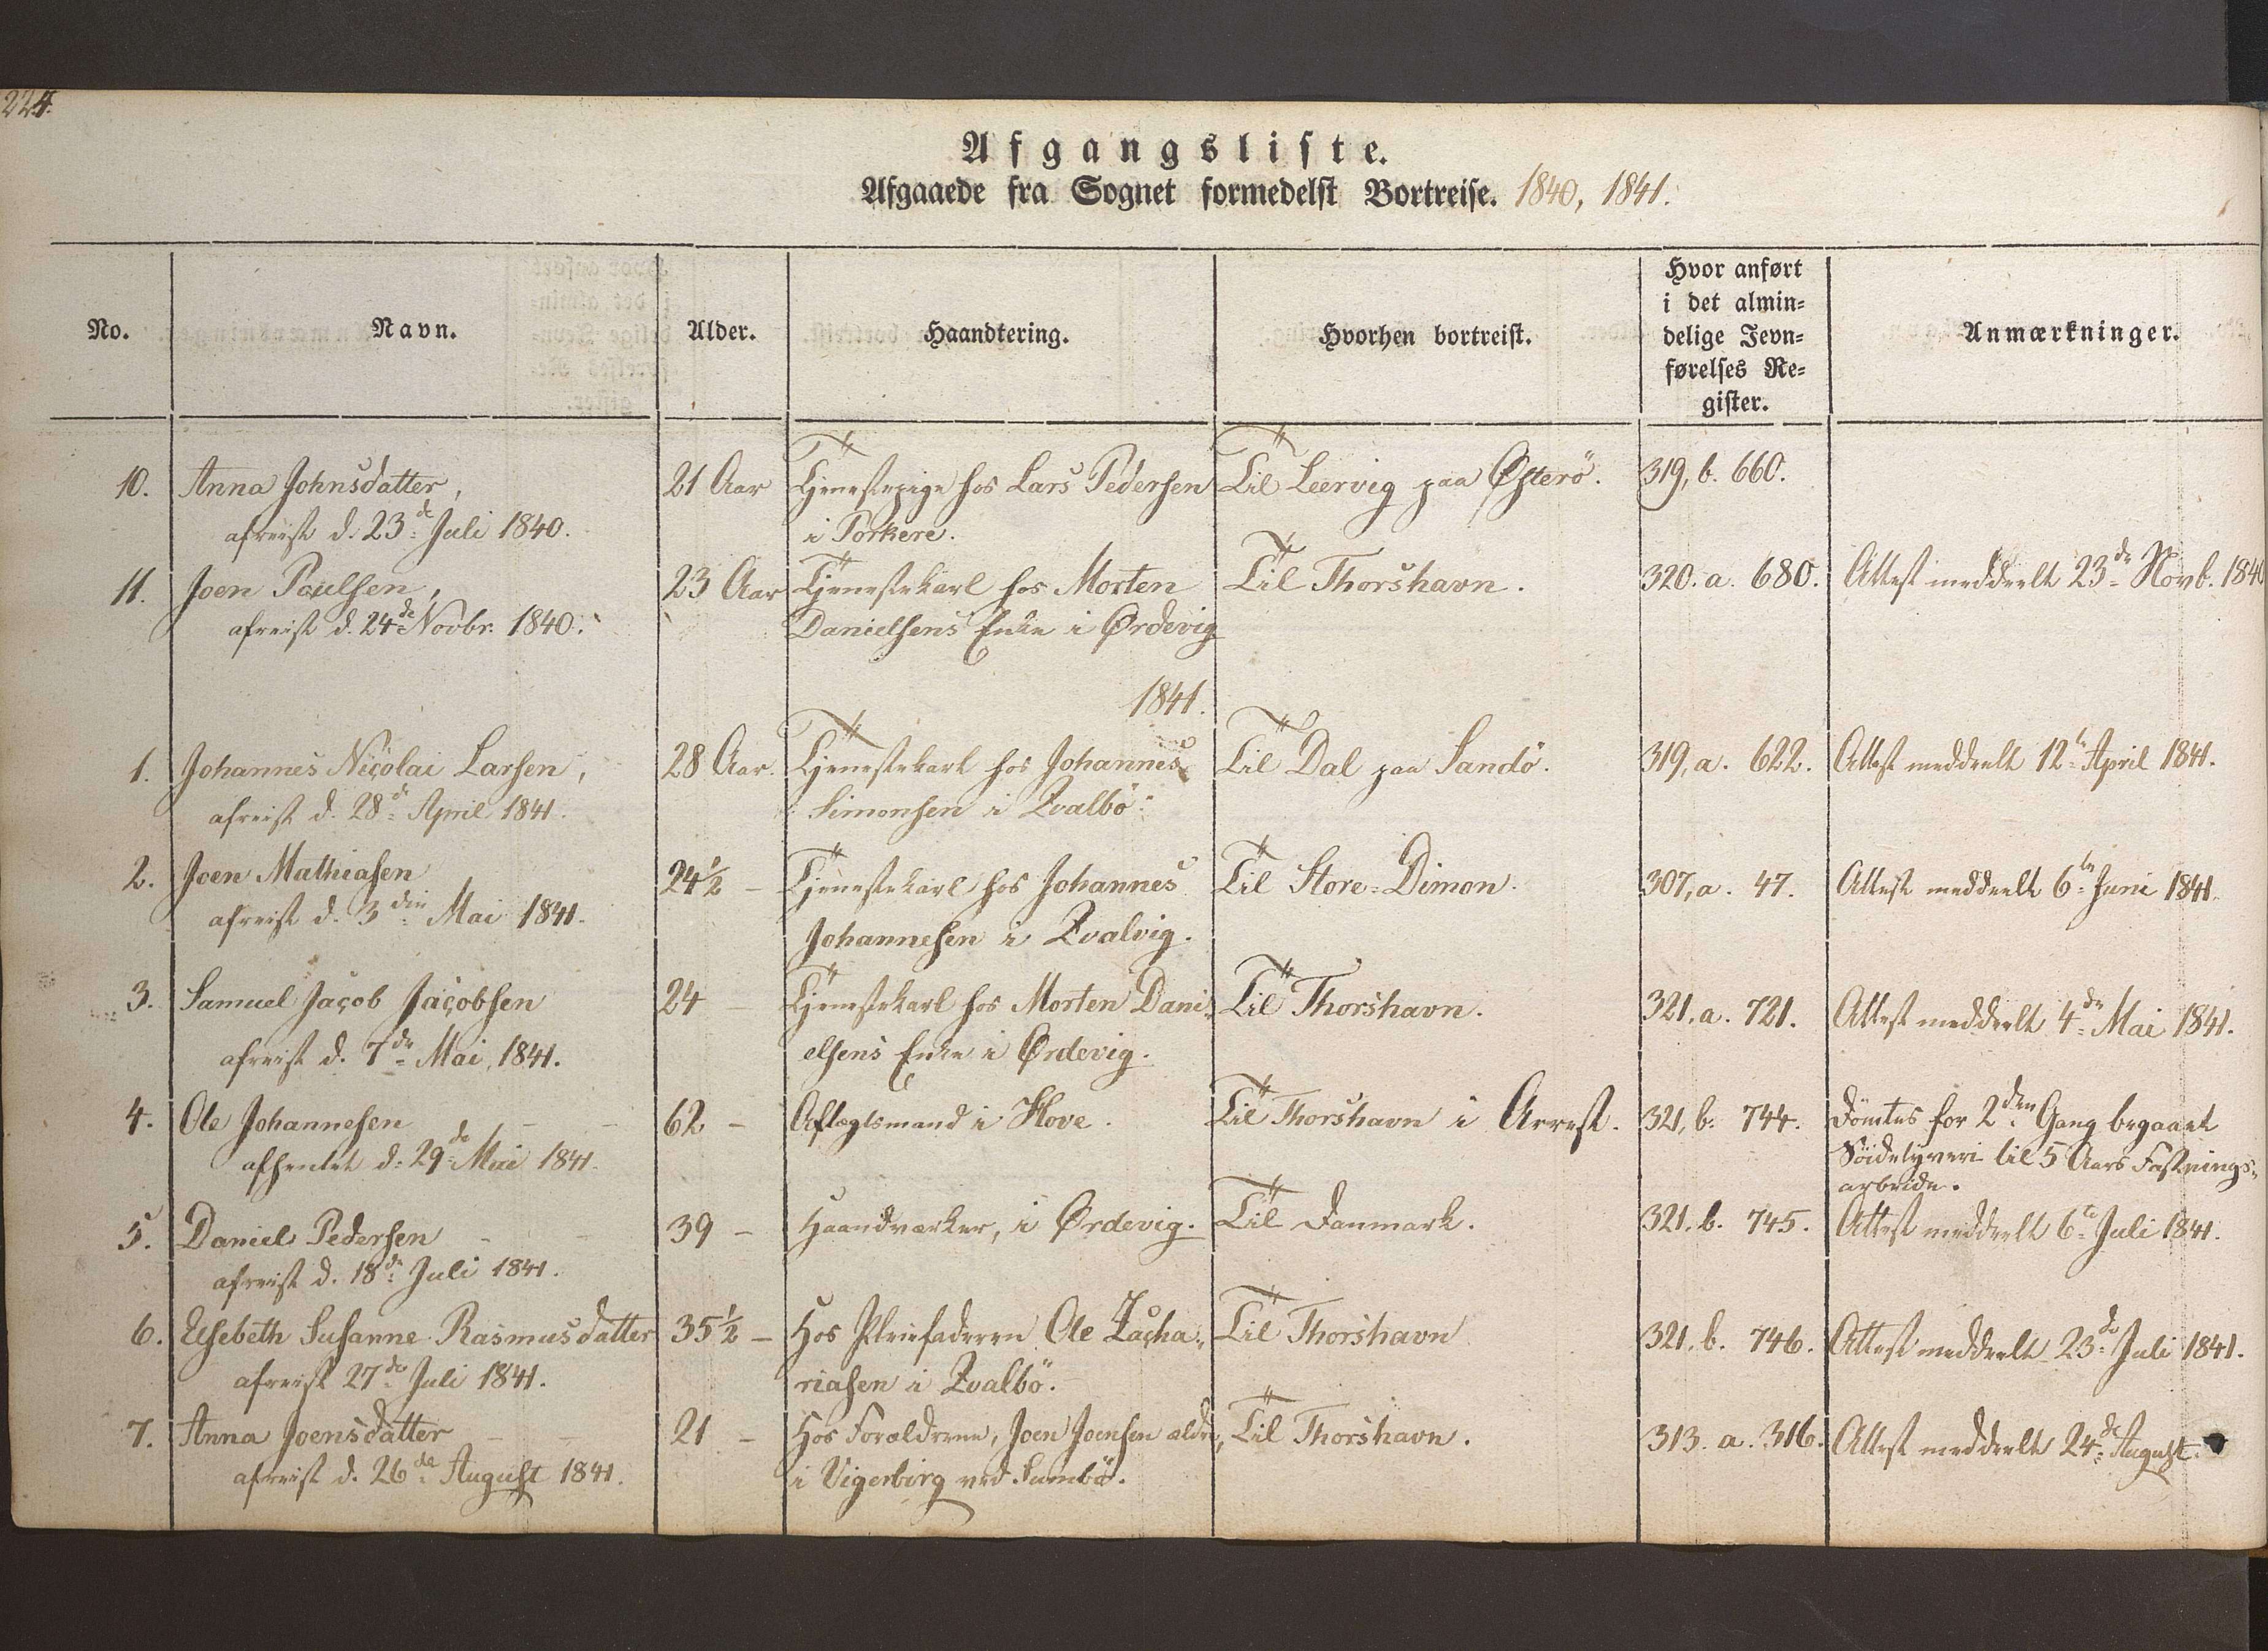 224.
Afgangsliste.
Afgaaede fra Sognet formedelst Bortreise. 1840, 1841.
No. Navn. Alder. Haandtering. Hvorhen bortreist. Hvor anført i det almin= delige Jevn= førelses Re= gister. Anmærkninger.
10. Anna Johnsdatter, 21 Aar Tjenestepige hos Lars Pedersen Til Leervig paa Østerö. 319, b. 660.
afreist d. 23de Juli 1840. i Porkere.
11. Joen Poulsen, 23 Aar Tjenestekarl hos Morten Til Thorshavn. 320. a. 680. Attest meddeelt 23de Novb. 1840
afreist d. 24de Novbr. 1840. Danielsens Enke i Ørdevig
1841.
1. Johannes Nicolai Larsen, 28 Aar. Tjenestekarl hos Johannes Til Dal paa Sandö. 319, a. 622. Attest meddeelt 12te April 1841.
afreist d. 28de April 1841. Simonsen i Qvalbö.
2. Joen Mathiasen 24½ – Tjenestekarl hos Johannes Til Store=Dimon. 307, a. 47. Attest meddeelt 6te Juni 1841.
afreist d. 3die Mai 1841. Johannesen i Qvalvig.
3. Samuel Jacob Jacobsen 24 – Tjenestekarl hos Morten Dani= Til Thorshavn. 321. a. 721. Attest meddeelt 4de Mai 1841.
afreist d. 7de Mai, 1841. elsens Enke i Ørdevig.
4. Ole Johannesen 62 – Aftægtsmand i Hove. Til Thorshavn i Arrest. 321, b. 744. Dömtes for 2den Gang begaaet
afhentet d. 29de Mai 1841. Söidetyveri til 5 Aars Fæstnings=
arbeide.
5. Daniel Pedersen 39 – Haandværker, i Ørdevig. Til Danmark. 321. b. 745. Attest meddeelt 6te Juli 1841.
afreist d. 18de Juli 1841.
6. Elsebeth Susanne Rasmusdatter 35½ – Hos Pleiefaderen Ole Zacha= Til Thorshavn 321. b. 746. Attest meddeelt 23de Juli 1841.
afreist 27de Juli 1841. riasen i Qvalbö.
7. Anna Joensdatter 21 – Hos Forældrene, Joen Joensen ældre, Til Thorshavn. 313. a. 316. Attest meddeelt 24de August.
afreist d. 26de August 1841. i Vigerbirg ved Sumbö.